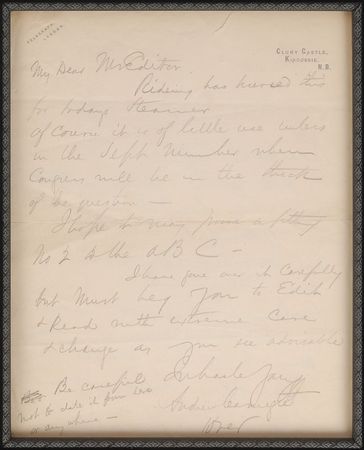 CLUNY CASTLE,
KINGUSSIE,
N.B.
My Dear Mr Editor
Riding has hurried this
for todays Steamer
of Course it is of little use unless
in the Sept Number when
Congress will be in the
of the question —
I hope to may prove a fitting
No 2 to the A B C —
I have gone over it Carefully
but Must beg You to Edit
& Read with extreme Care
& change as you see advisable
Be careful
not to date it from here
or anywhere —
Yours
Andrew Carnegie
Over